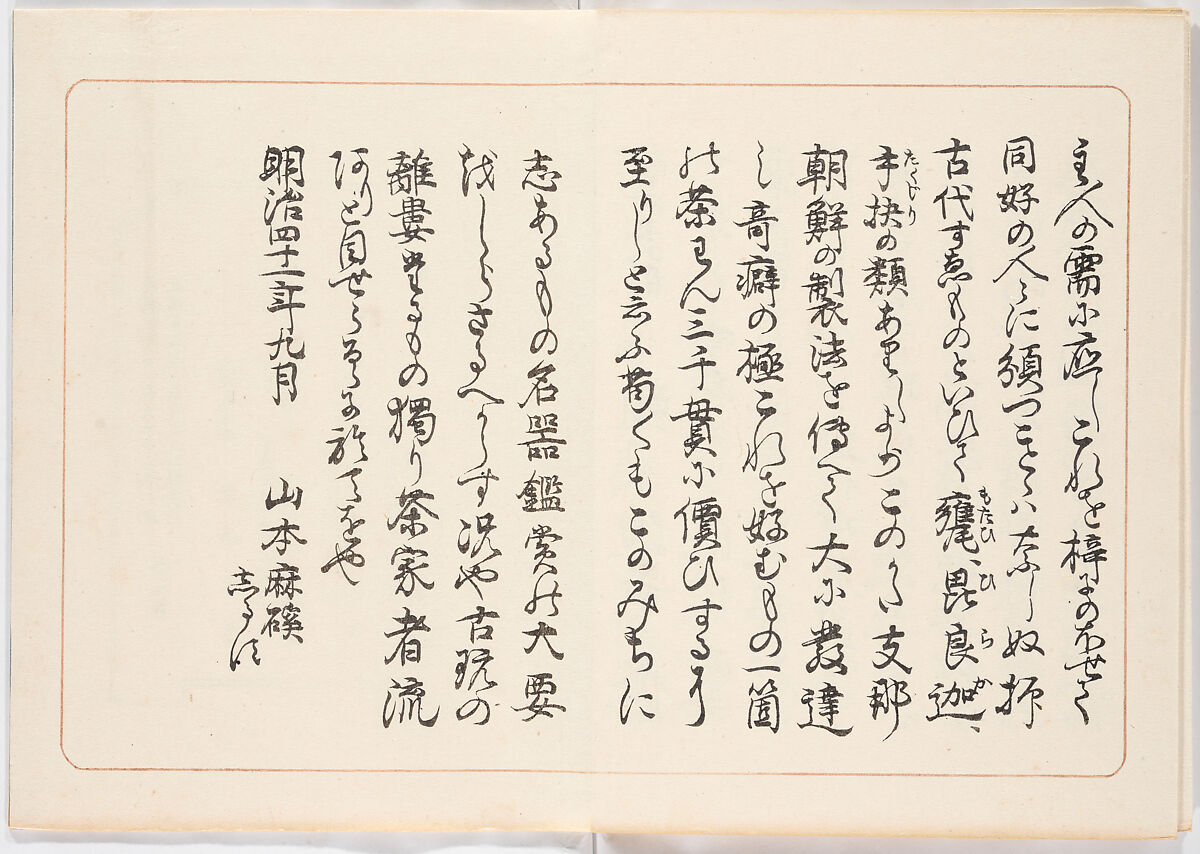 主人の需に応しこれを梓にのほせて
同好の人々に頒つことゝはなしぬ抑
古代すゑものといひて甕、毘良迦、
もたひ ひらか
手抉の類ありしよりこのかた支那
たくじり
朝鮮の製法を伝へて大に發達
し奇癖の極これを好むもの一箇
の茶わん三千貫に價ひするに
至りしと云ふ苟くもこのみちに
志あるもの名器鑑賞の大要
をしらさるへからす况や古玩の
離婁たるもの獨り茶家者流
ありと目せらるゝに於てをや
明治四十二年九月 山本麻溪
しるす